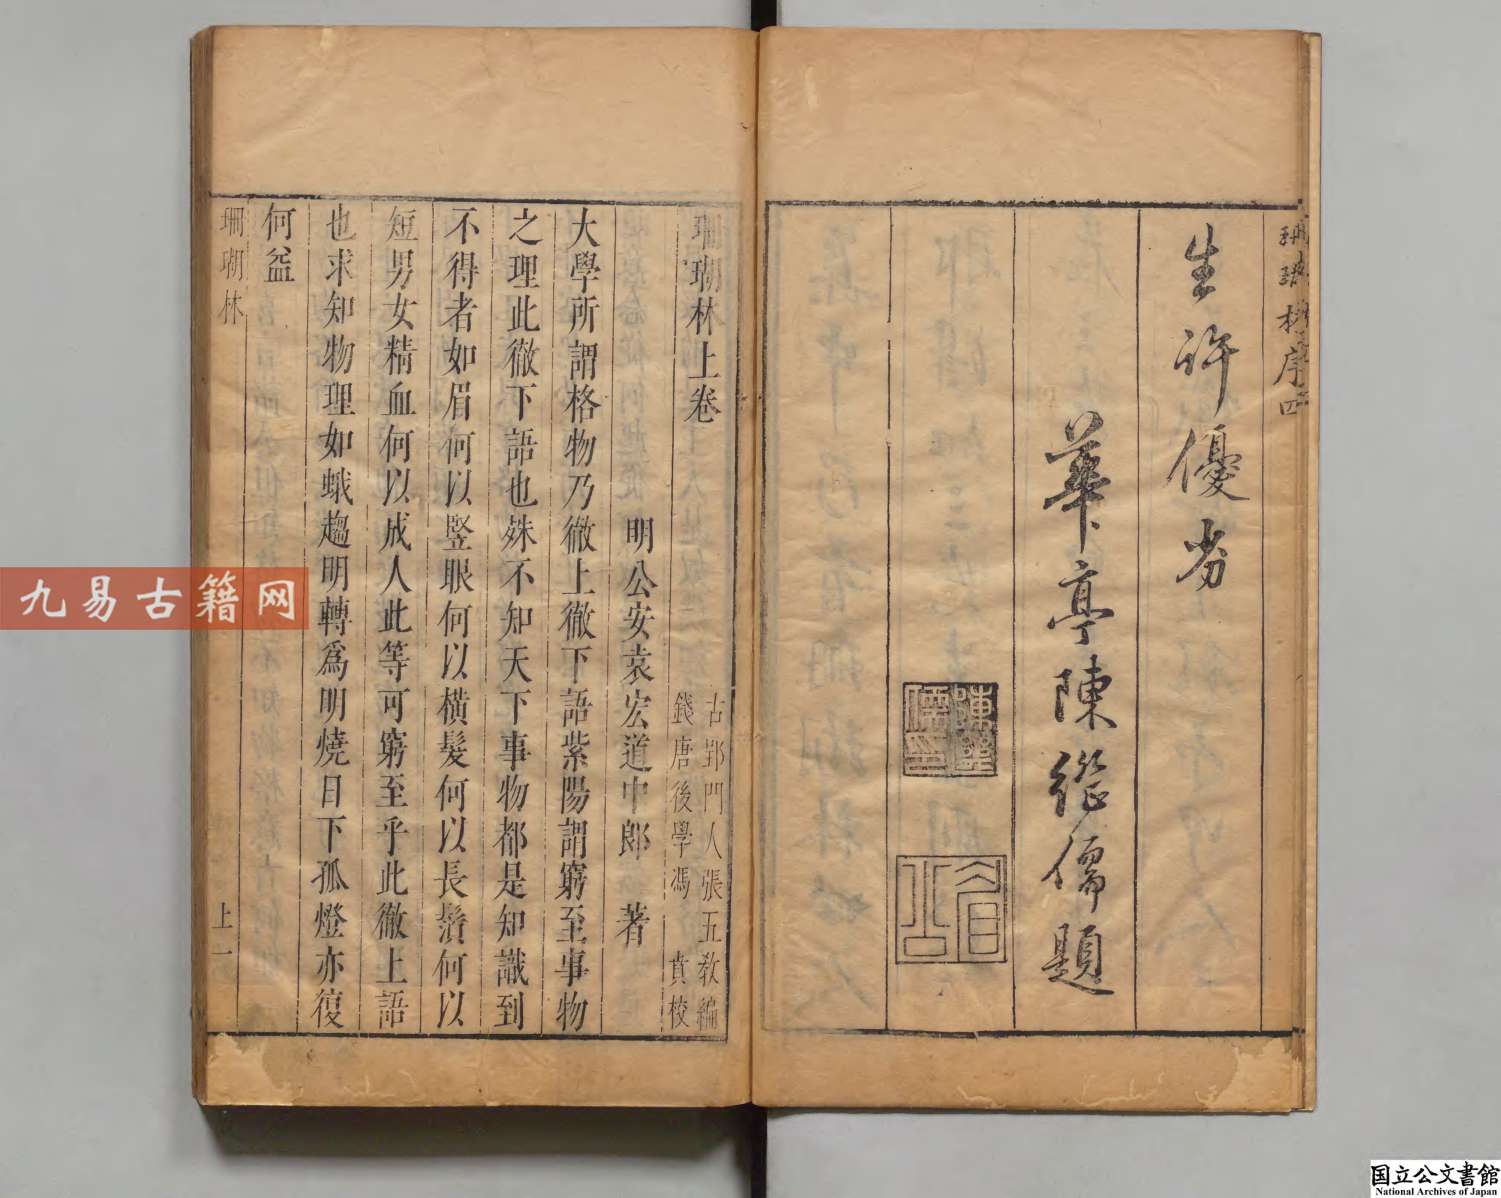 珊瑚林序四
生許優劣
華亭陳繼儒題
陳繼儒印
眉公
珊瑚林上卷
古邗門人張五敎編
錢唐後學馮賁校
明公安袁宏道中郎著
大學所謂格物乃徹上徹下語紫陽謂窮至事物
之理此徹下語也殊不知天下事物都是知識到
不得者如眉何以豎眼何以橫髮何以長鬚何以
短男女精血何以成人此等可窮至乎此徹上語
也求知物理如蛾趨明轉爲明燒日下孤燈亦復
何益
珊瑚林
上一
九易古籍网
国立公文書館
National Archives of Japan